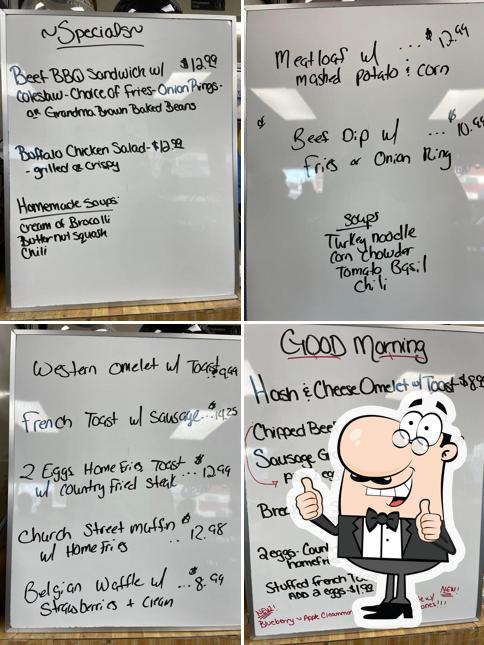 ~Specials~
Beef BBQ Sandwich w/ $12.99
Coleslaw-Choice of Fries-Onion Rings-
or Grandma Brown Baked Beans
Buffalo Chicken Salad-$12.99
-grilled or Crispy
Homemade Soups:
Cream of Brocolli
Butternut Squash
Chili
Meatloaf w/ ... $12.99
mashed potato & corn
Beef Dip w/ ... $10.99
fries or Onion Ring
Soups
Turkey noodle
Corn Chowder
Tomato Basil
Chili
Western Omelet w/ Toast
French Toast w/ Sausage...
2 Eggs Home Fries Toast... $12.99
w/ Country Fried Steak
Church Street muffin $12.98
w/ Home Fries
Belgian Waffle w/ ... $8.99
Strawberries + Cream
GOOD Morning
Hash & Cheese Omelet w/ Toast-$8.99
Chipped Bee
Sausage G
2 eggs-Coun
homefri
Stuffed French To
ADD 2 eggs-$1.98
NEW!
NEW!
Blueberry ~ Apple Cinammon